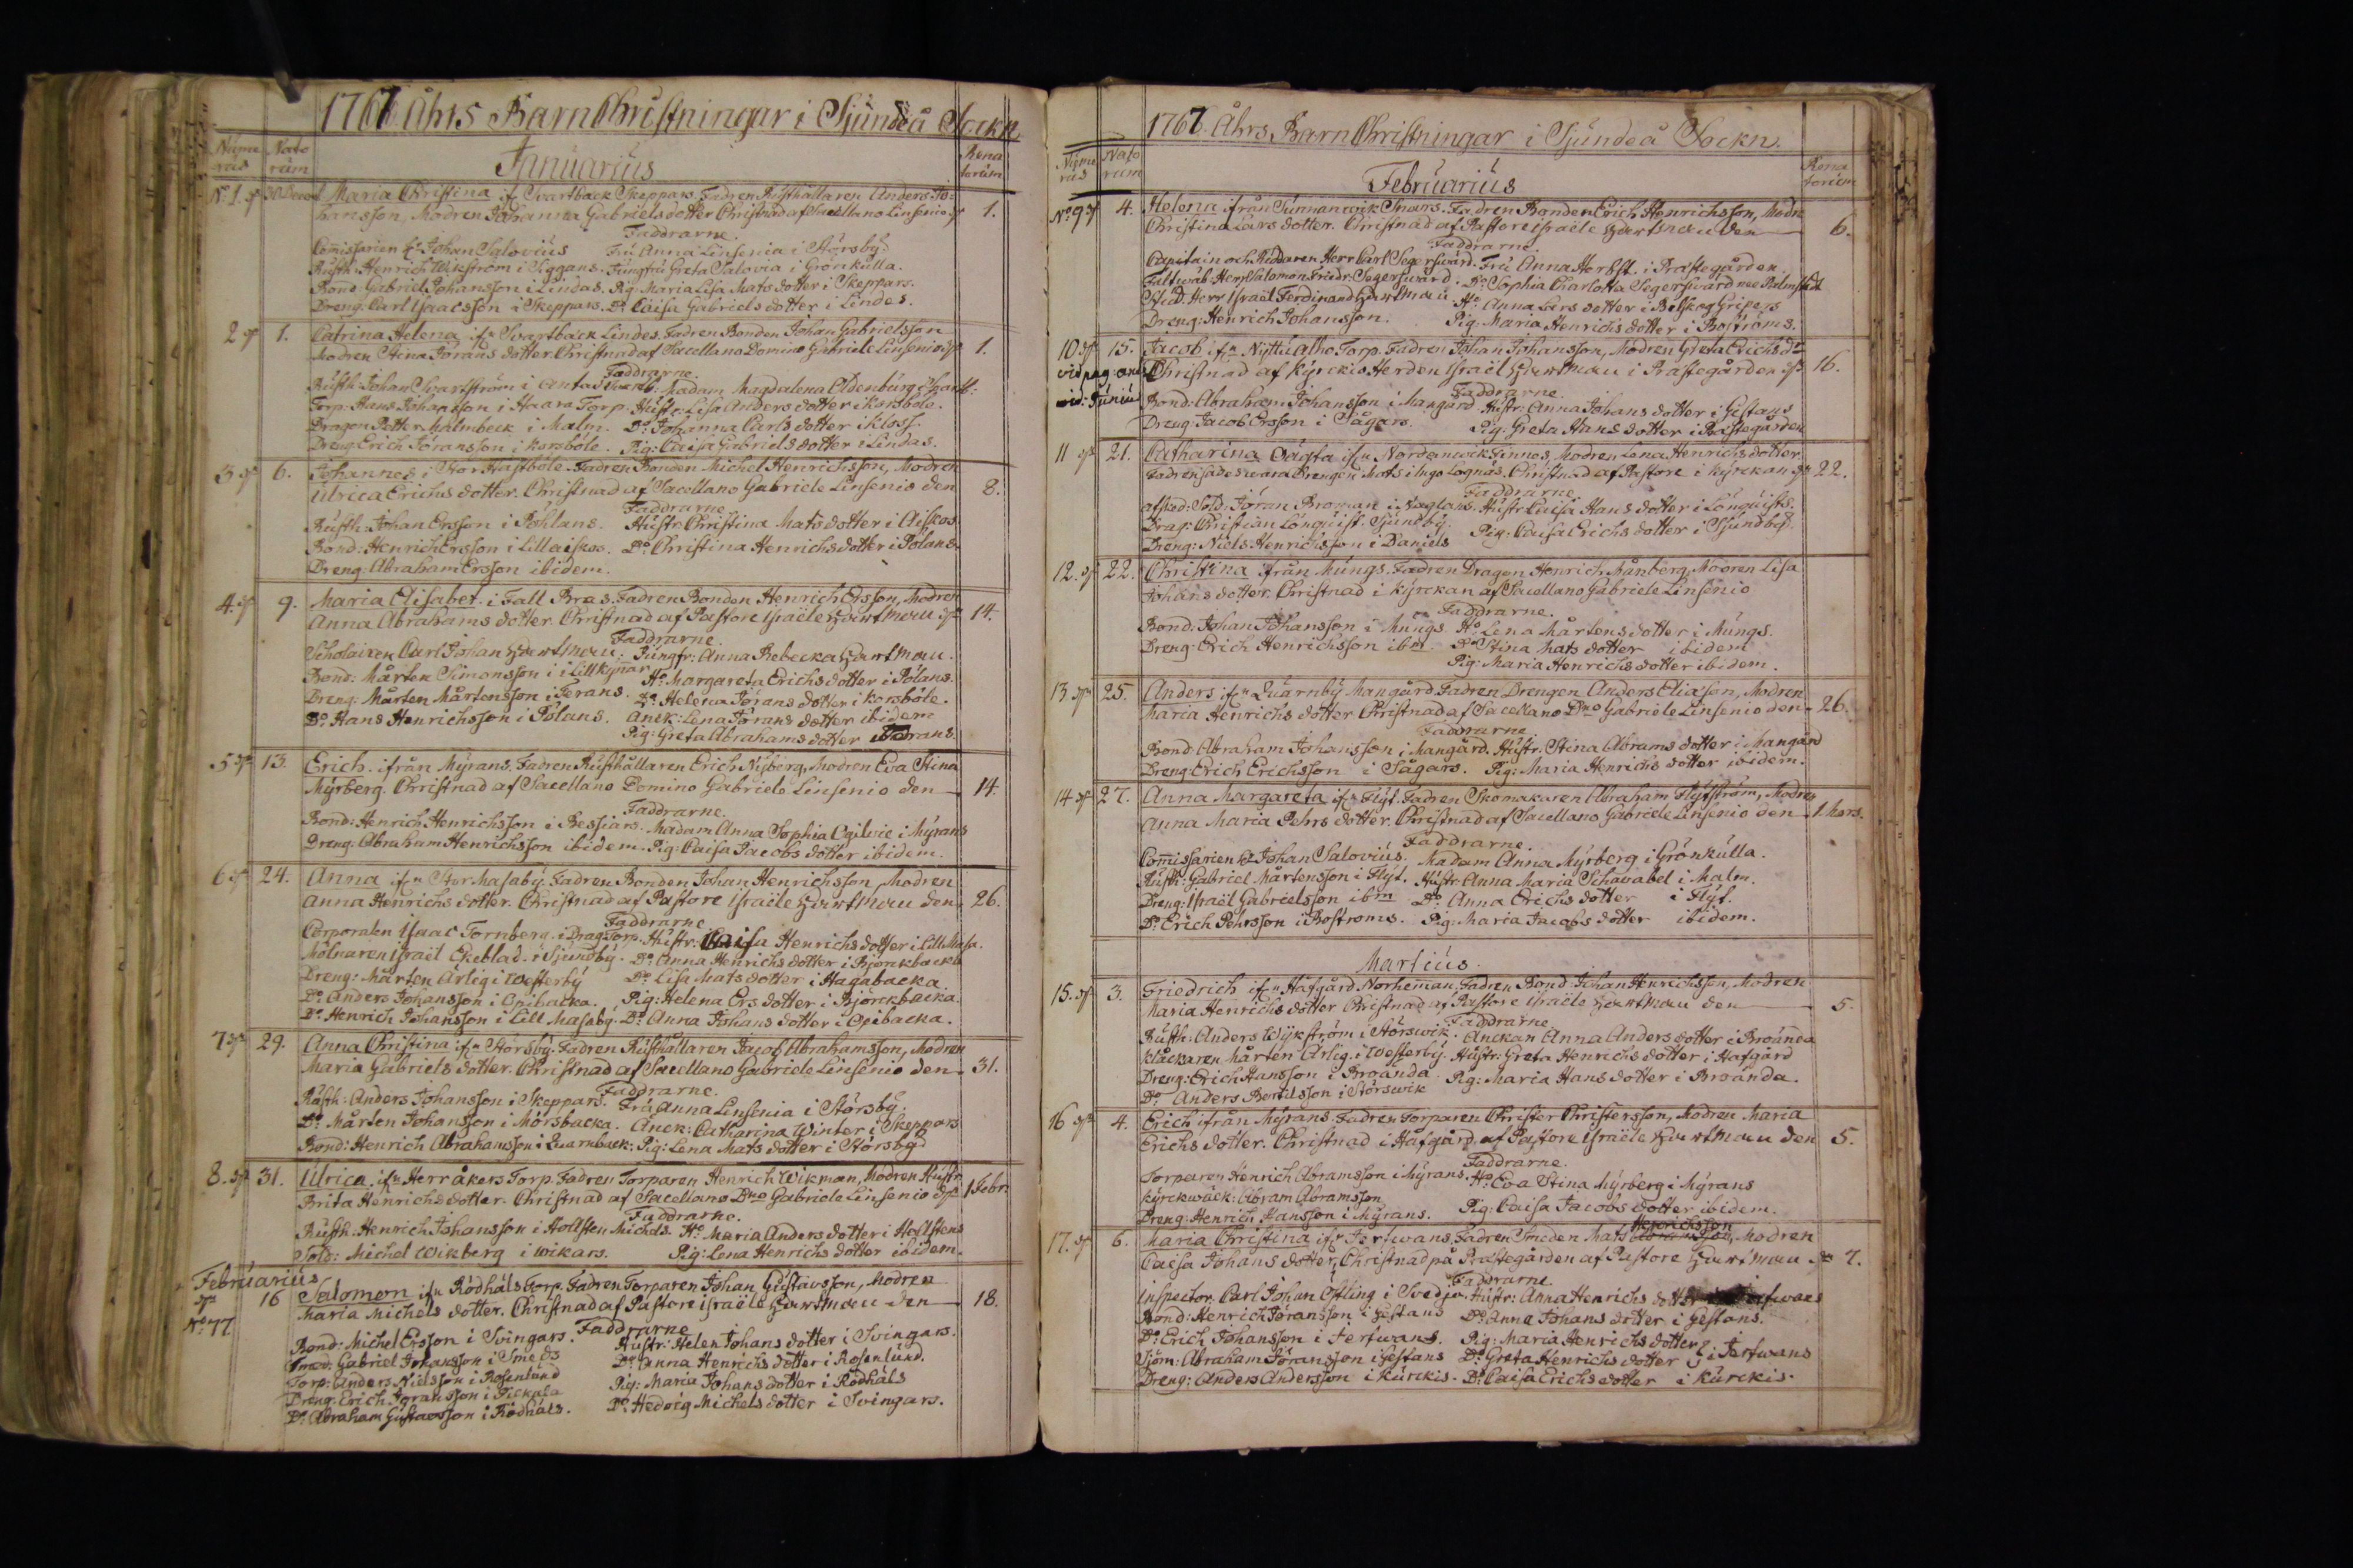 1767 Åhrs Barn Christningar i Sjundeå Sockn
Nume rus Nato rum Januarius Rena torum
No 1. 30 Decemb Maria Christina ifn Svartback Skeppars. Fadren Rusthållaren Anders Jo-
hansson, Modren Johanna Gabrielsdotter Christnad af Sacellano Linsenio dn 1.
Faddrarne.
Commissarien Hr Johan Salovius Fru Anna Linsenia i Störsby
Rusth: Henrich Wikström i Siggans. Jungfru Greta Salovia i Grönkulla.
Bond: Gabriel Johansson i Lindas. Pig: Maria Lisa Mats dotter i Skeppars.
Dreng: Carl Isaacsson i Skeppars. Do Caisa Gabriels dotter i Lindes.
2 dn 1. Catrina Helena ifn Svartback Lindes. Fadren Bonden Johan Gabrielsson
Modren Stina Jörans dotter Christnad af Sacellano Domino Gabriele Linsenio dn 1.
Faddrarne.
Rusth: Johan Svartström i Madam Magdalena Oldenburg
Torp: Hans Johansson i Haara Torp. Hustr: Lisa Anders dotter i Korsböle.
Dragon Petter Malmbeck i Malm. Do Johanna Carls dotter i Klosf.
Dreng Erich Jöransson i Korsböle. Pig: Caisa Gabriels dotter i Lindas.
3 dn 6. Johannes i Stor Hästböle. Fadren Bonden Michel Henrichsson, Modren
Ulrica Erichs dotter. Christnad af Sacellano Gabriele Linsenio den 8.
Faddrarne
Rusth: Johan Ersson i Påhlans. Hustr: Christina Mats dotter i Aiskos
Bond: Henrich Ersson i Lillaiskos. Do Christina Henrichs dotter i Pålans.
Dreng: Abraham Ersson ibidem.
4 dn 9. Maria Elisabet i Fall Prras. Fadren Bonden Henrich Ersson, Modren
Anna Abrahams dotter. Christnad af Pastore Israële Hartman dn 14.
Faddrarne.
Scholairen Carl Johan Hartman. Jungfr: Anna Rebecka Hartman.
Bond: Mårten Simonsson i Lillkynar Ho Margareta Erichs dotter i Pålans.
Dreng: Mårten Mårtensson i Ferans. Do Helena Jörans dotter i Korsböle.
Do Hans Henrichsson i Pålans. Anck: Lena Jörans dotter ibidem
Pig: Greta Abrahams dotter
5 dn 13. Erich. ifrån Myrans. Fadren Rusthållaren Erich Nyberg, Modren Eva Stina
Myrberg. Christnad af Sacellano Domino Gabriele Linsenio den 14.
Faddrarne.
Bond: Henrich Henrichsson i Bessiars. Madam Anna Sophia Ogilvie i Myrans
Dreng: Abraham Henrichsson ibidem. Pig: Caisa Jacobs dotter ibidem.
6 dn 24. Anna ifn Stor Masaby. Fadren Bonden Johan Henrichsson, Modren
Anna Henrichs dotter. Christnad af Pastore Israële Hartman den 26.
Faddrarne
Corporalen Isaac Tornberg i Drag. Torp. Hustr: Caisa Henrichs dotter i Lill Masa.
Mölnaren Israël Ekeblad i Sjundby. Do Anna Henrichs dotter i Björckbacka
Dreng: Mårten Ärlig i Westerby Do Lisa Mats dotter i Hagabacka
Do Anders Johansson i Opibacka. Pig: Helena Ers dotter i Björckbacka.
Do Henrich Johansson i Lill Masaby. Do Anna Johans dotter i Opibacka.
7 dn 29. Anna Christina ifn Störsby. Fadren Rusthållaren Jacob Abrahamsson, Modren
Maria Gabriels dotter. Christnad af Sacellano Gabriele Linsenio den 31.
Faddrarne.
Rusth: Anders Johansson i Skeppars. Fru Anna Linsenia i Störsby.
Do Mårten Johansson i Mörsbacka. Anck: Catharina Winter i Skeppars
Bond: Henrich Abrahamsson i Quarnback: Pig: Lena Mats dotter i Störsby
8 dn 31. Ulrica ifn Herråkers Torp. Fadren Torparen Henrich Wikman, Modren Hustr:
Brita Henrichs dotter. Christnad af Sacellano Dno Gabriele Linsenio dn 1 Febr.
Faddrarne.
Rusth: Henrich Johansson i Hollsten Michels. Ho Maria Anders dotter i Hollstens
Sold: Michel Wikberg i Wikars. Pig: Lena Henrichs dotter ibidem.
Februarius
dn 16 Salomon ifn Rödhäls Torp. Fadren Torparen Johan Gustavsson, Modren
No 77 Maria Michels dotter. Christnad af Pastore Israële Hartman den 18.
Faddrarne
Bond: Michel Ersson i Svingars. Hustr: Helen Johans dotter i Svingars.
Smed: Gabriel Johansson i Smeds Do Anna Henrichs dotter i Rosenlund.
Torp: Anders Nielsson i Rosenlund Pig: Maria Johans dotter i Rödhäls
Dreng: Erich Jöransson i Pickala Do Hedvig Michels dotter i Svingars.
Do Abraham Gustavsson i Rödhäls.
1767 Åhrs Barn Christningar i Sjundeå Sockn.
Nume rus Nato rum Februarius Rena torum
No 9 dn 4. Helena ifrån Sunnanwik Smårs. Fadren Bonden Erich Henrichsson, Modr:
Christina Lars dotter. Christnad af Pastore Israële Hartman den 6.
Faddrarne
Capitain och Riddaren Herr Carl Segersvärd. Fru Anna Herbst. i Prästegården
Fältwäb: Herr Salomon Friedr: Segersvärd. Do Sophia Charlotta Segersvärd née Palmfelt
Stud: Herr Israël Ferdinand Hartman Ho Anna Lars dotter i Bälskog Gripers
Dreng: Henrich Johansson. Pig: Maria Henrichs dotter i Boströms.
10 dn 15. Jacob ifn Nyttu Alho Torp. Fadren Johan Johansson, Modren Greta Erichs dr
vid pag: Christnad af Kyrckis Herden Israël Hartman i Prästegården dn 16.
Junii Faddrarne.
Bond: Abraham Johansson i Mangård Hustr: Anna Johans dotter i Gestans
Dreng: Jacob Ersson i Sågars. Pig: Greta Hans dotter i Prästegården
11 dn 21. Catharina Oägta ifn Nordanwik Finnes, Modren Lena Henrichs dotter.
Fadren sades wara Drengen Mats i Ingo Lågnäs. Christnad af Pastore i Kyrckan dn 22.
Faddrarne.
afsked: Sold: Jöran Broman i Naglans. Hustr Caisa Hans dotter i Lönquists.
Drag: Christian Lönquist. Sjundby. Pig: Caisa Erichs dotter i Sjundby.
Dreng: Niels Henrichsson i Daniels
12. dn 22. Christina ifrån Mungs. Fadren Dragon Henrich Månberg, Modren Lisa
Johans dotter. Christnad i Kyrckan af Sacellano Gabriele Linsenio
Faddrarne.
Bond: Johan Johansson i Mungs. Ho Lena Mårtens dotter i Mungs.
Dreng: Erich Henrichsson ibm Do Stina Mats dotter ibidem
Pig: Maria Henrichs dotter ibidem.
13 dn 25. Anders ifn Quarnby Mangård. Fadren Drengen Anders Eliasson, Modren
Maria Henrichs dotter Christnad af Sacellano Dno Gabriele Linsenio den 26.
Faddrarne
Bond: Abraham Johansson i Mangård. Hustr: Stina Abrams dotter i Mangård
Dreng: Erich Erichsson i Sågars. Pig: Maria Henrichs dotter ibidem.
14 dn 27. Anna Margareta ifn Flyt. Fadren Skomakaren Abraham Flytström, Modren
Anna Maria Pehrs dotter. Christnad af Sacellano Gabriele Linsenio den 1 Mars.
Faddrarne.
Commissarien Hr Johan Salovius. Madam Anna Myrberg i Grönkulla.
Rusth: Gabriel Mårtensson i Flyt. Hustr: Anna Maria Schavabel i Malm.
Dreng: Israël Gabrielsson ibm Do Anna Erichs dotter i Flyt.
Do Erich Pehrsson i Boströms. Pig: Maria Jacobs dotter ibidem.
Martius
15. dn 3. Friedrich ifn Hafgård Norrheman. Fadren Bond: Johan Henrichsson, Modren
Maria Henrichs dotter Christnad af Pastore Israële Hartman den 5.
Faddrarne
Rusth: Anders Wykström i Störswik. Anckan Anna Anders dotter i Broända
Klåckaren Mårten Ärlig i Westerby. Hustr: Greta Henrichs dotter i Hafgård
Dreng: Erich Hansson i Broända Pig: Maria Hans dotter i Broända.
Do Anders Bertilsson i Störswik
16 dn 4. Erich ifrån Myrans. Fadren Torparen Christer Christersson, Modren Maria
Erichs dotter. Christnad i Hafgård af Pastore Israële Hartman den 5.
Faddrarne.
Torparen Henrich Abramsson i Myrans. Ho Eva Stina Myrberg i Myrans
Kyrckwäck: Abram Abramsson
Dreng: Henrich Hansson i Myrans. Pig: Caisa Jacobs dotter ibidem.
17. dn 6. Maria Christina ifn Jerfwans. Fadren Smeden Mats Henrichsson Abramsson, Modren
Caisa Johans dotter, Christnad på Prästegården af Pastore Hartman dn 7.
Faddrarne.
Inspector Carl Johan Östling i Svedja. Hustr: Anna Henrichs dotter
Bond: Henrich Jöransson i Gestans Do Anna Johans dotter i Gestans.
Do Erich Johansson i Jerfwans. Pig: Maria Henrichs dotter
Sjöm: Abraham Jöransson i Gestans Do Greta Henrichs dotter i Jerfwans
Dreng: Anders Andersson i Kurckis. Do Caisa Erichs dotter i Kurckis.